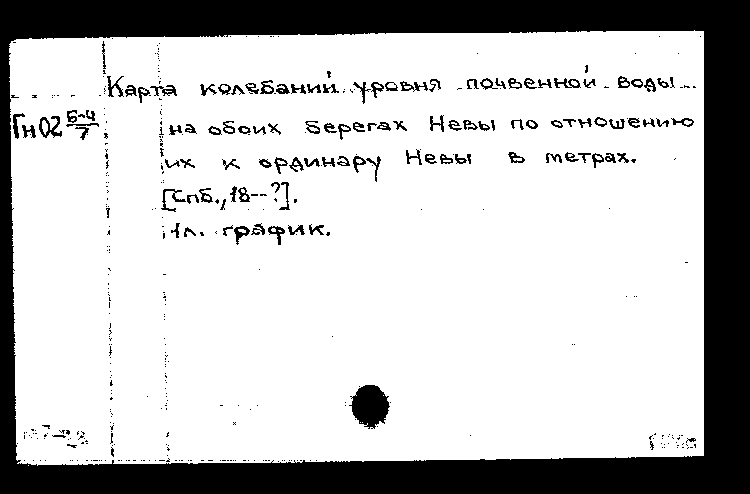 Карта колебаний уровня почвенной воды
Гн02 Б-4/7
на обоих берегах Невы по отношению
их к ординару Невы в метрах.
[Спб., 18--?].
1л. график.